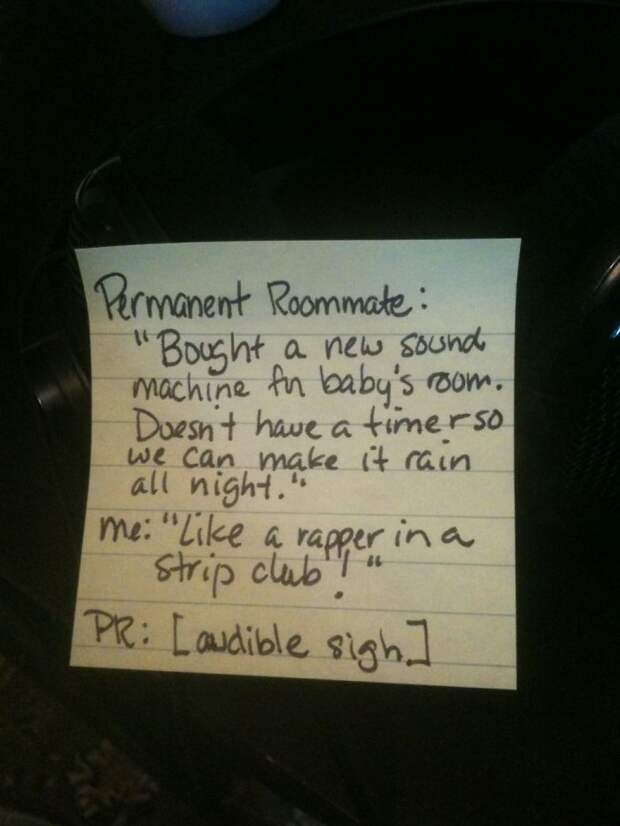 Permanent Roommate:
"Bought a new sound
machine fn baby's room.
Doesn't have a timer so
we can make it rain
all night."
Me: "Like a rapper in a
strip club!"
PR: [audible sigh.]